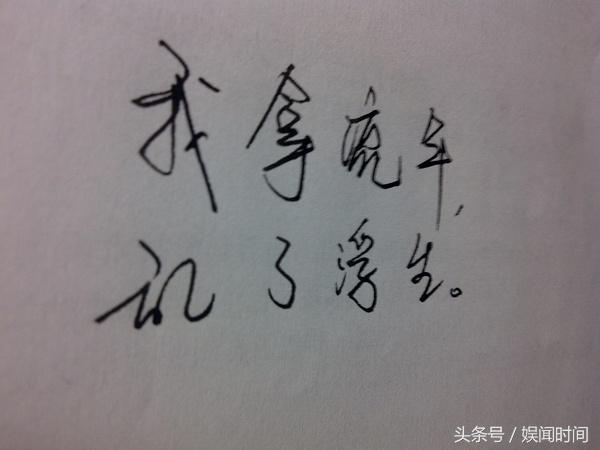 我拿流年,
乱了浮生。
头条号 / 娱闻时间